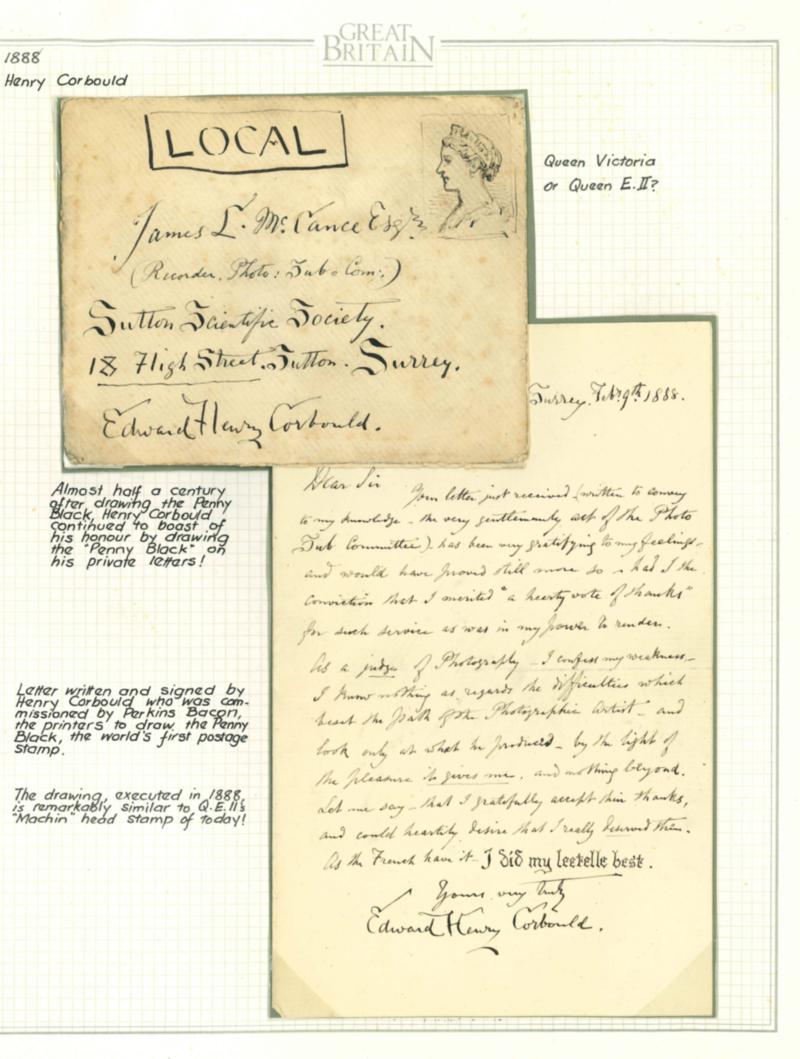 GREAT
BRITAIN
1888
Henry Corbould
LOCAL
Queen Victoria
or Queen E.II?
James L. McCance Esqre
(Recorder. Photo: Sub-Com:)
Sutton Scientific Society.
18 High Street. Sutton. Surrey.
Edward Henry Corbould.
Surrey. Feb. 9th 1888.
Almost half a century
after drawing the Penny
Black, Henry Corbould
continued to boast of
his honour by drawing
the "Penny Black" on
his private letters!
Dear Sir
Your letter just received (written to convey
to my knowledge - the very gentlemanly act of the Photo
Sub Committee) has been very gratifying to my feelings -
and would have proved still more so - had I the
conviction that I merited "a hearty vote of thanks"
for such service as was in my power to render.
As a judge of Photography - I confess my weakness -
I know nothing as regards the difficulties which
beset the path of the Photographic Artist - and
look only at what he produced - by the light of
the pleasure it gives me, and nothing beyond.
Let me say - that I gratefully accept their thanks,
and could heartily desire that I really deserved them.
As the French have it - I did my leetelle best.
Yours very truly
Edward Henry Corbould.
Letter written and signed by
Henry Corbould who was com-
missioned by Perkins Bacon,
the printers to draw the Penny
Black, the world's first postage
stamp.
The drawing, executed in 1888,
is remarkably similar to Q.E.II's
"Machin" head stamp of today!